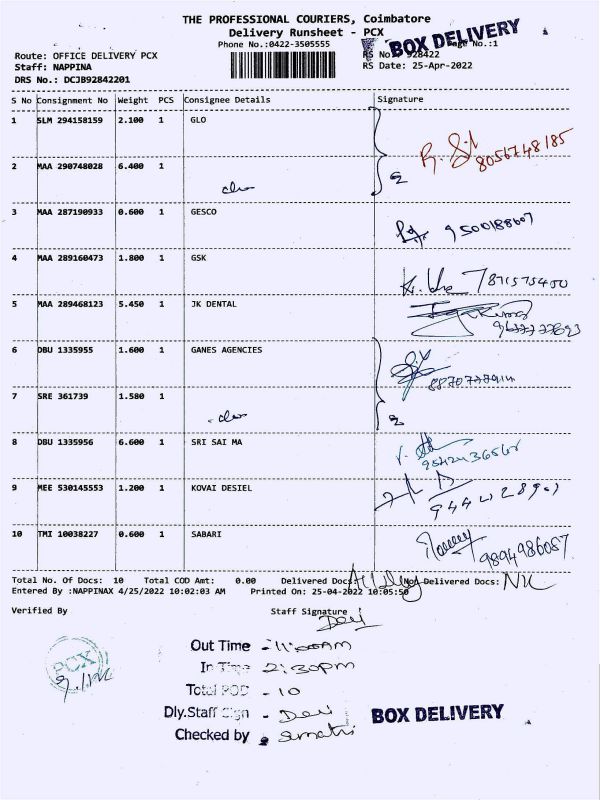 THE PROFESSIONAL COURIERS, Coimbatore
Delivery Runsheet - PCX
Phone No.:0422-3505555
BOX DELIVERY
Page No.:1
Route: OFFICE DELIVERY PCX
Staff: NAPPINA
DRS No.: DCJB92842201
RS No 928422
RS Date: 25-Apr-2022
S No Consignment No Weight PCS Consignee Details Signature
1 SLM 294158159 2.100 1 GLO
8056748185
2 MAA 290748028 6.400 1
3 MAA 287190933 0.600 1 GESCO
9500188607
4 MAA 289160473 1.800 1 GSK
5 MAA 289468123 5.450 1 JK DENTAL
6 DBU 1335955 1.600 1 GANES AGENCIES
7 SRE 361739 1.580 1
8 DBU 1335956 6.600 1 SRI SAI MA
9 MEE 530145553 1.200 1 KOVAI DESIEL
10 TMI 10038227 0.600 1 SABARI
9894986087
Total No. Of Docs: 10 Total COD Amt: 0.00 Delivered Docs: Not Delivered Docs: NIL
Entered By :NAPPINAX 4/25/2022 10:02:03 AM Printed On: 25-04-2022 10:05:50
Verified By Staff Signature
Devi
PCX
Out Time - 11:00AM
In Time 2:30pm
Total POD - 10
Dly.Staff Sign - Devi
Checked by
BOX DELIVERY